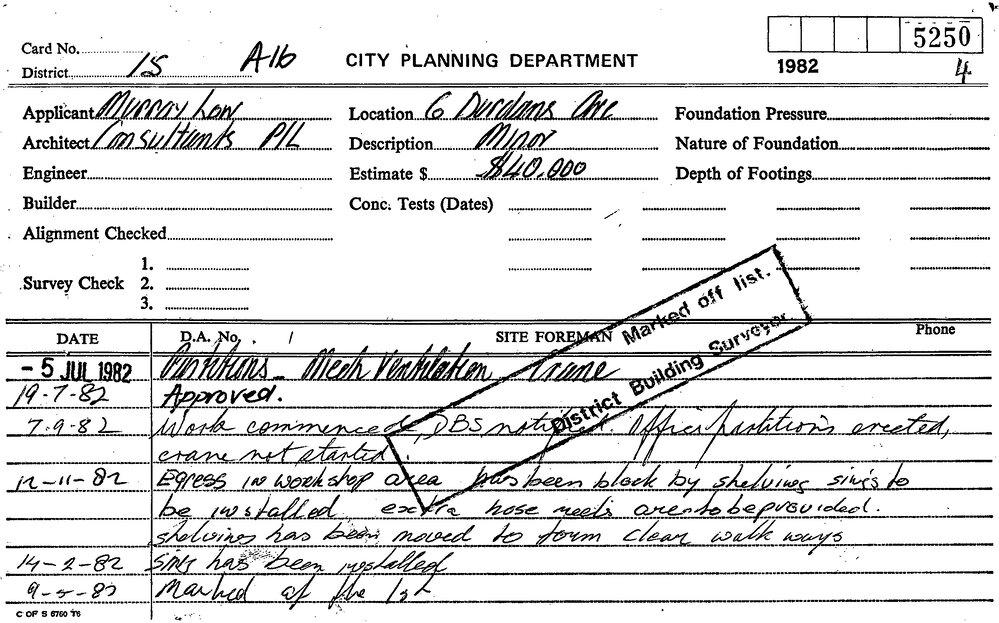 5250
Card No.
District 15 A1b CITY PLANNING DEPARTMENT 1982 4
Applicant Murray Low Location 6 Durdans Ave Foundation Pressure
Architect Consultants P/L Description Minor Nature of Foundation
Engineer Estimate $ $40,000 Depth of Footings
Builder Conc. Tests (Dates)
Alignment Checked
Survey Check 1.
2.
3.
Marked off list.
District Building Surveyor.
DATE D.A. No. SITE FOREMAN Phone
- 5 JUL 1982 Partitions - Mech Ventilation Crane
19-7-82 Approved.
7-9-82 Work commenced, DBS Office partitions erected,
crane not started.
12-11-82 Egress in workshop area has been block by shelving sings to
be installed extra hose reels are to be provided.
shelvings has been moved to form clear walk ways
14-2-82 Sing has been installed
Marked of the list
C OF S 6760 76